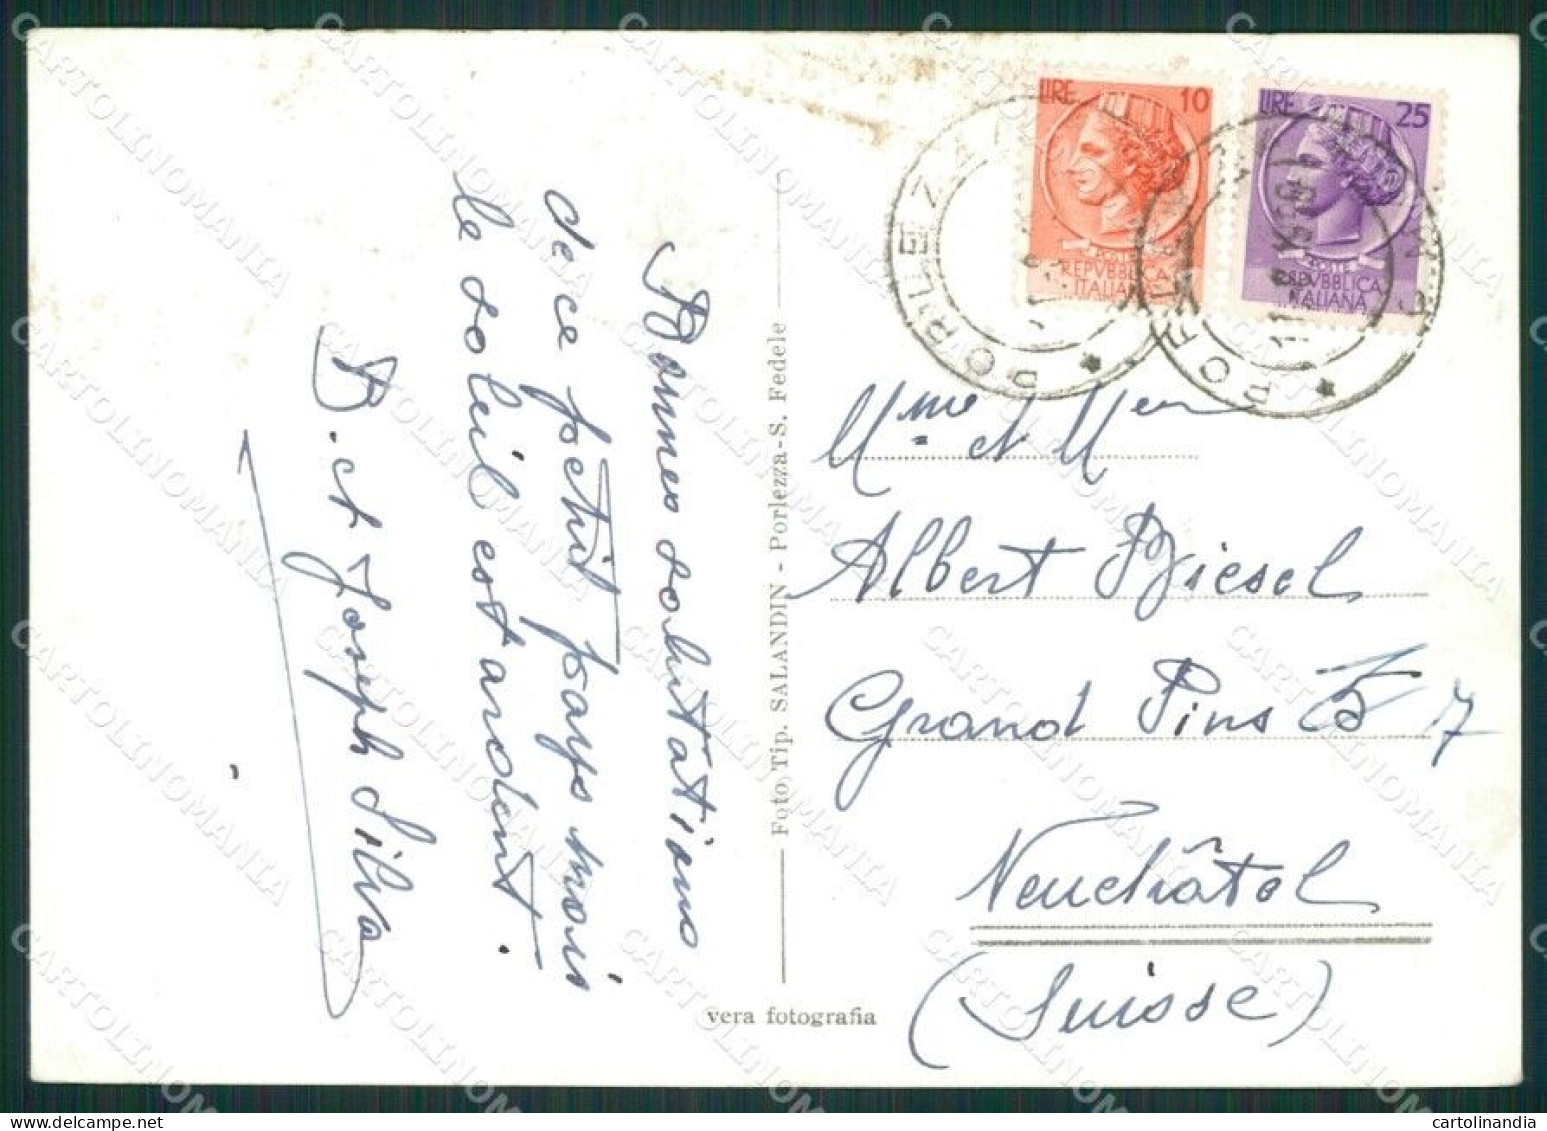 Bonnes salutations
de ce petit pays mais
le soleil est ardent.
D. et Joseph Silva
Foto Tip. SALANDIN - Porlezza - S. Fedele
vera fotografia
LIRE 10
REPVBBLICA
ITALIANA
LIRE 25
POSTE
REPVBBLICA
ITALIANA
PORLEZZA
Mme et Mr
Albert Biesel
Grand Pins 7
Neuchâtel
(Suisse)
CARTOLINOMANIA
cartolinandia